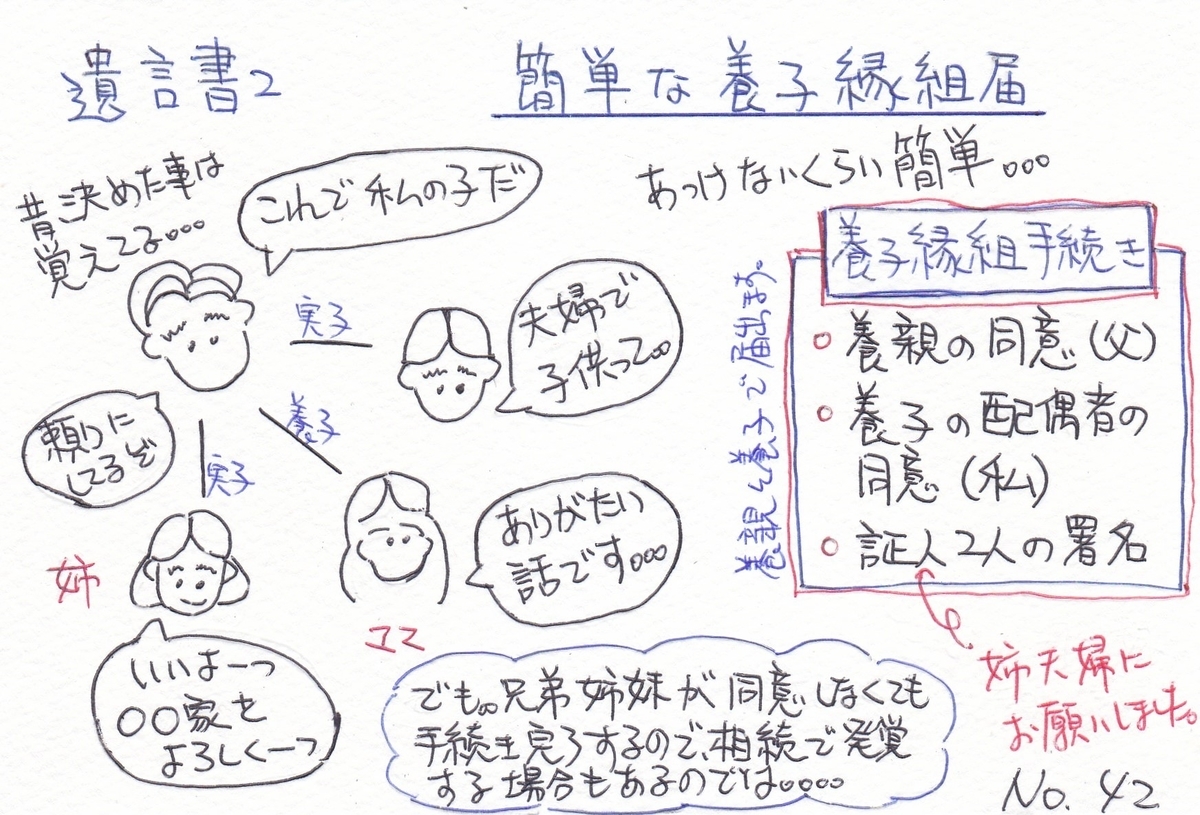 遺言書2
簡単な養子縁組届
昔決めた事は
覚えてる...
これで私の子だ
あっけないくらい簡単...
実子
夫婦で
子供って..
養子
頼りに
してるぞ
実子
姉
ママ
ありがたい
話です...
いいよーっ
〇〇家を
よろしくーっ
養親と養子で届出ます。
養子縁組手続き
養親の同意(父)
養子の配偶者の
同意(私)
証人2人の署名
姉夫婦に
お願いしました。
でも..兄弟姉妹が同意しなくても
手続き完了するので、相続で発覚
する場合もあるのでは....
No.42